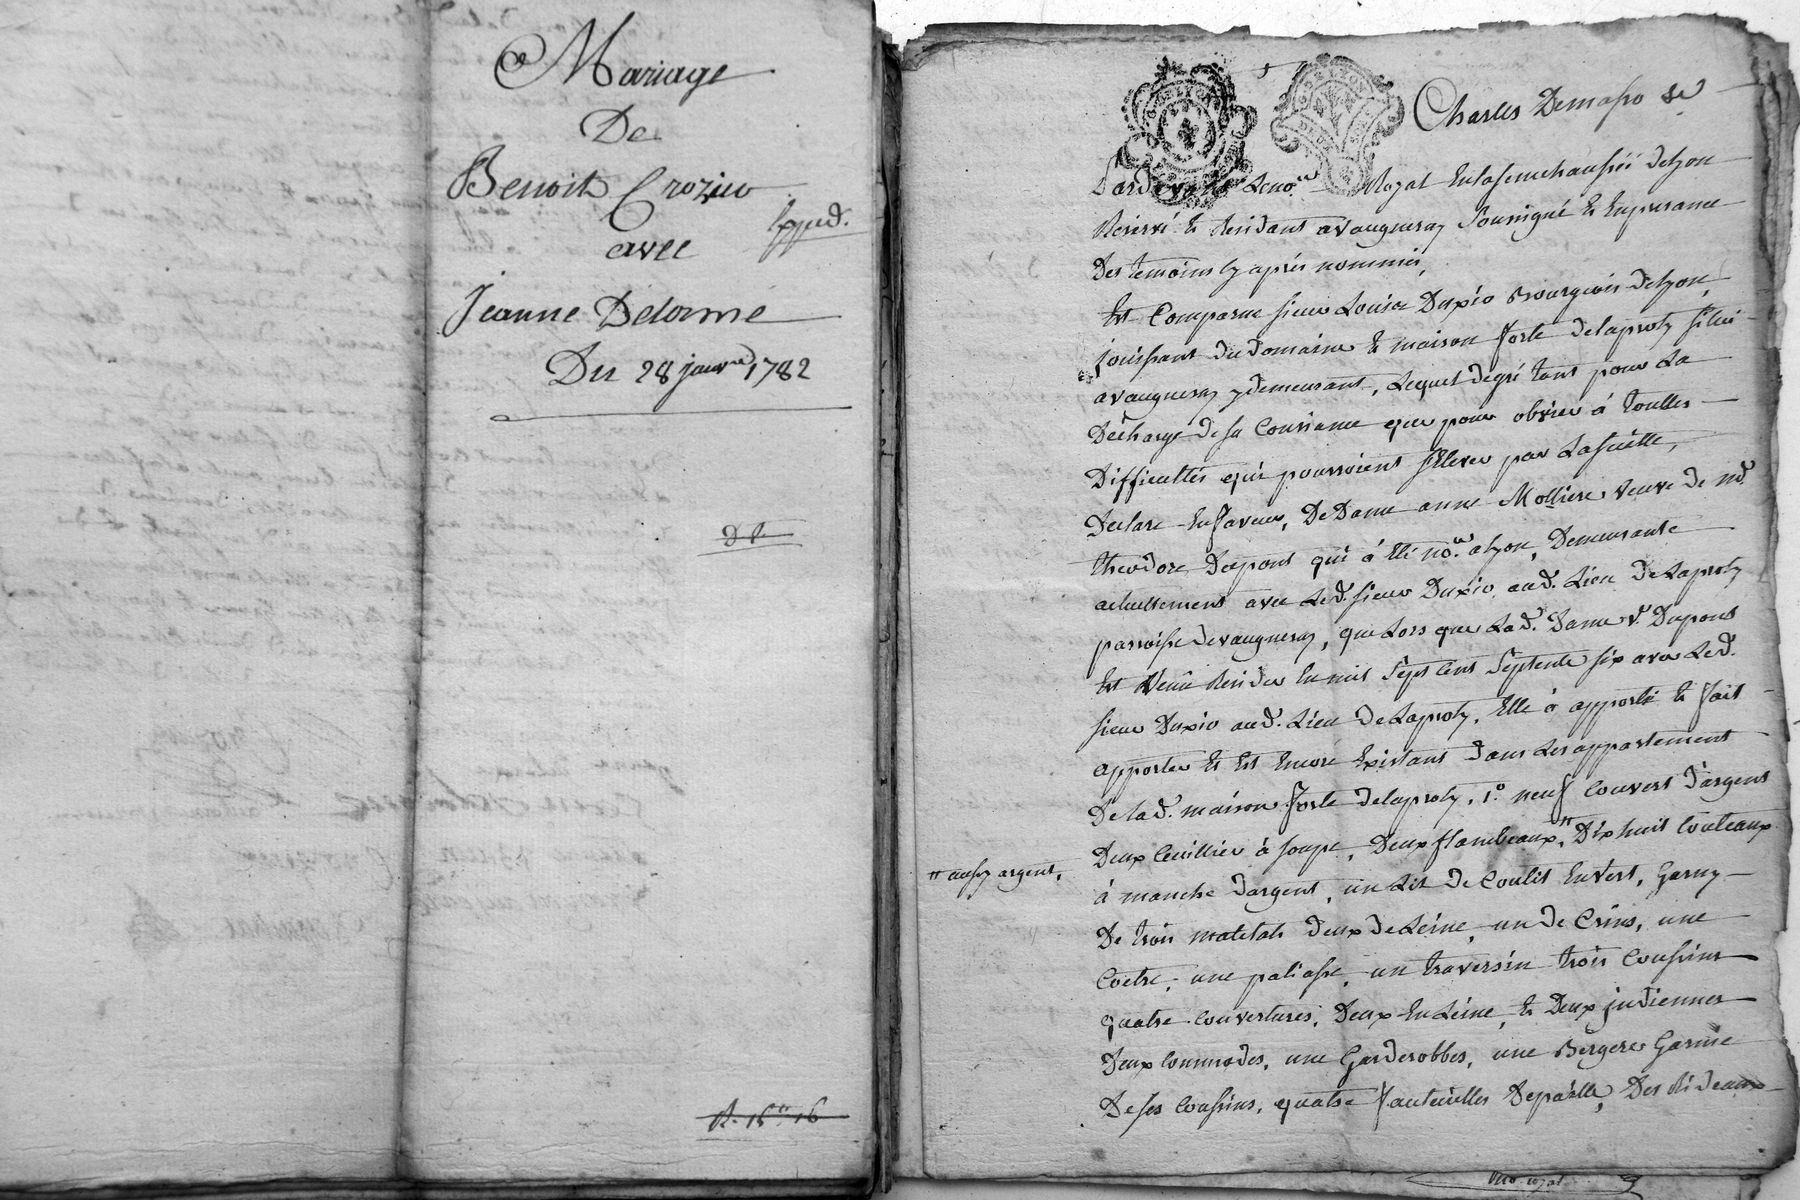 Mariage
De
Benoit Crozier
Expéd.
avec
Jeanne Delorme
Du 28 janv.er 1782
R. 15 16
DE LYON
DEUX SOLS
Charles Demasso
Pardevant Le no.re Royal En la senechaussée delyon
Reservé Et Residant avaugneray Soussigné Et Enpresence
Des temoins Cy aprés nommés,
Est Comparu sieur Louis Dupéio Bourgeois delyon,
jouissant du Domaine Et maison forte delaproty situé
avaugneray y demeurant, Lequel degré tant pour La
Décharge de sa Consiance que pour obvier á toutes
Difficultés qui pourroient s'Elever par Lasuitte,
Declare En faveur, De Dame anne Mollière veuve de m.r
theodore Dupont qui á Eté no.re alyon, Demeurante
actuellement avec Led. sieur aud. Lieu De Laproty
parroisse devaugneray, que Lors que Lad. Dame v.e Dupont
Est Venüe Resider En mil Sept Cent Septente six avec Led.
sieur aud. Lieu De Laproty, Elle á apporté Et fait
apporter Et Est Encore Existant dans Les appartement
De lad. maison forte delaproty, 1.o neuf Couvert d'argent
Deux Ceuillier á soupe, Deux flambeaux," Dix huit Couteaux
" aussy argent,
á manche dargent, un Lit De Coutit En Vert, Garny
De trois matelats deux de Leine, un de Crins, une
Coetre, une paliasse, un traversin trois Coussins
quatre Couvertures, Deux En Leine, Et Deux jndiennes
deux Commodes, une Garderobbes, une Bergere Garnie
De ses Coussins, quatre fauteuilles Depaille, Des Rideaux